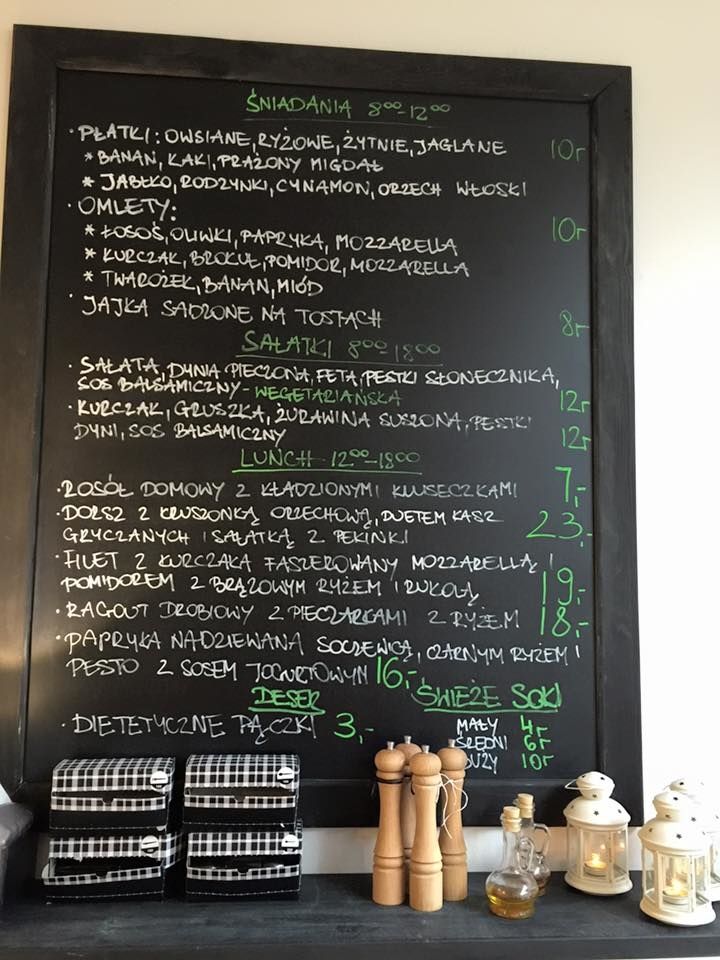 ŚNIADANIA 8⁰⁰-12⁰⁰
• PŁATKI: OWSIANE, RYŻOWE, ŻYTNIE, JAGLANE 10r
* BANAN, KAKI, PRAŻONY MIGDAŁ
* JABŁKO, RODZYNKI, CYNAMON, ORZECH WŁOSKI
• OMLETY: 10r
* ŁOSOŚ, OLIWKI, PAPRYKA, MOZZARELLA
* KURCZAK, BROKUŁ, POMIDOR, MOZZARELLA
* TWAROŻEK, BANAN, MIÓD
• JAJKA SADZONE NA TOSTACH 8r
SAŁATKI 8⁰⁰-18⁰⁰
• SAŁATA, DYNIA PIECZONA, FETA, PESTKI SŁONECZNIKA,
SOS BALSAMICZNY - WEGETARIAŃSKA 12r
• KURCZAK, GRUSZKA, ŻURAWINA SUSZONA, PESTKI
DYNI, SOS BALSAMICZNY 12r
LUNCH 12⁰⁰-18⁰⁰
• ROSÓŁ DOMOWY Z KŁADZIONYMI KLUSECZKAMI 7,-
• DORSZ Z KRUSZONKĄ ORZECHOWĄ, DUETEM KASZ
GRYCZANYCH I SAŁATKĄ Z PEKINKI 23,-
• FILET Z KURCZAKA FASZEROWANY MOZZARELLĄ I
POMIDOREM Z BRĄZOWYM RYŻEM I RUKOLĄ 19,-
• RAGOUT DROBIOWY Z PIECZARKAMI Z RYŻEM 18,-
• PAPRYKA NADZIEWANA SOCZEWICĄ, CZARNYM RYŻEM I
PESTO Z SOSEM JOGURTOWYM 16,-
DESER
• DIETETYCZNE PĄCZKI 3,-
ŚWIEŻE SOKI
MAŁY 4r
ŚREDNI 6r
DUŻY 10r